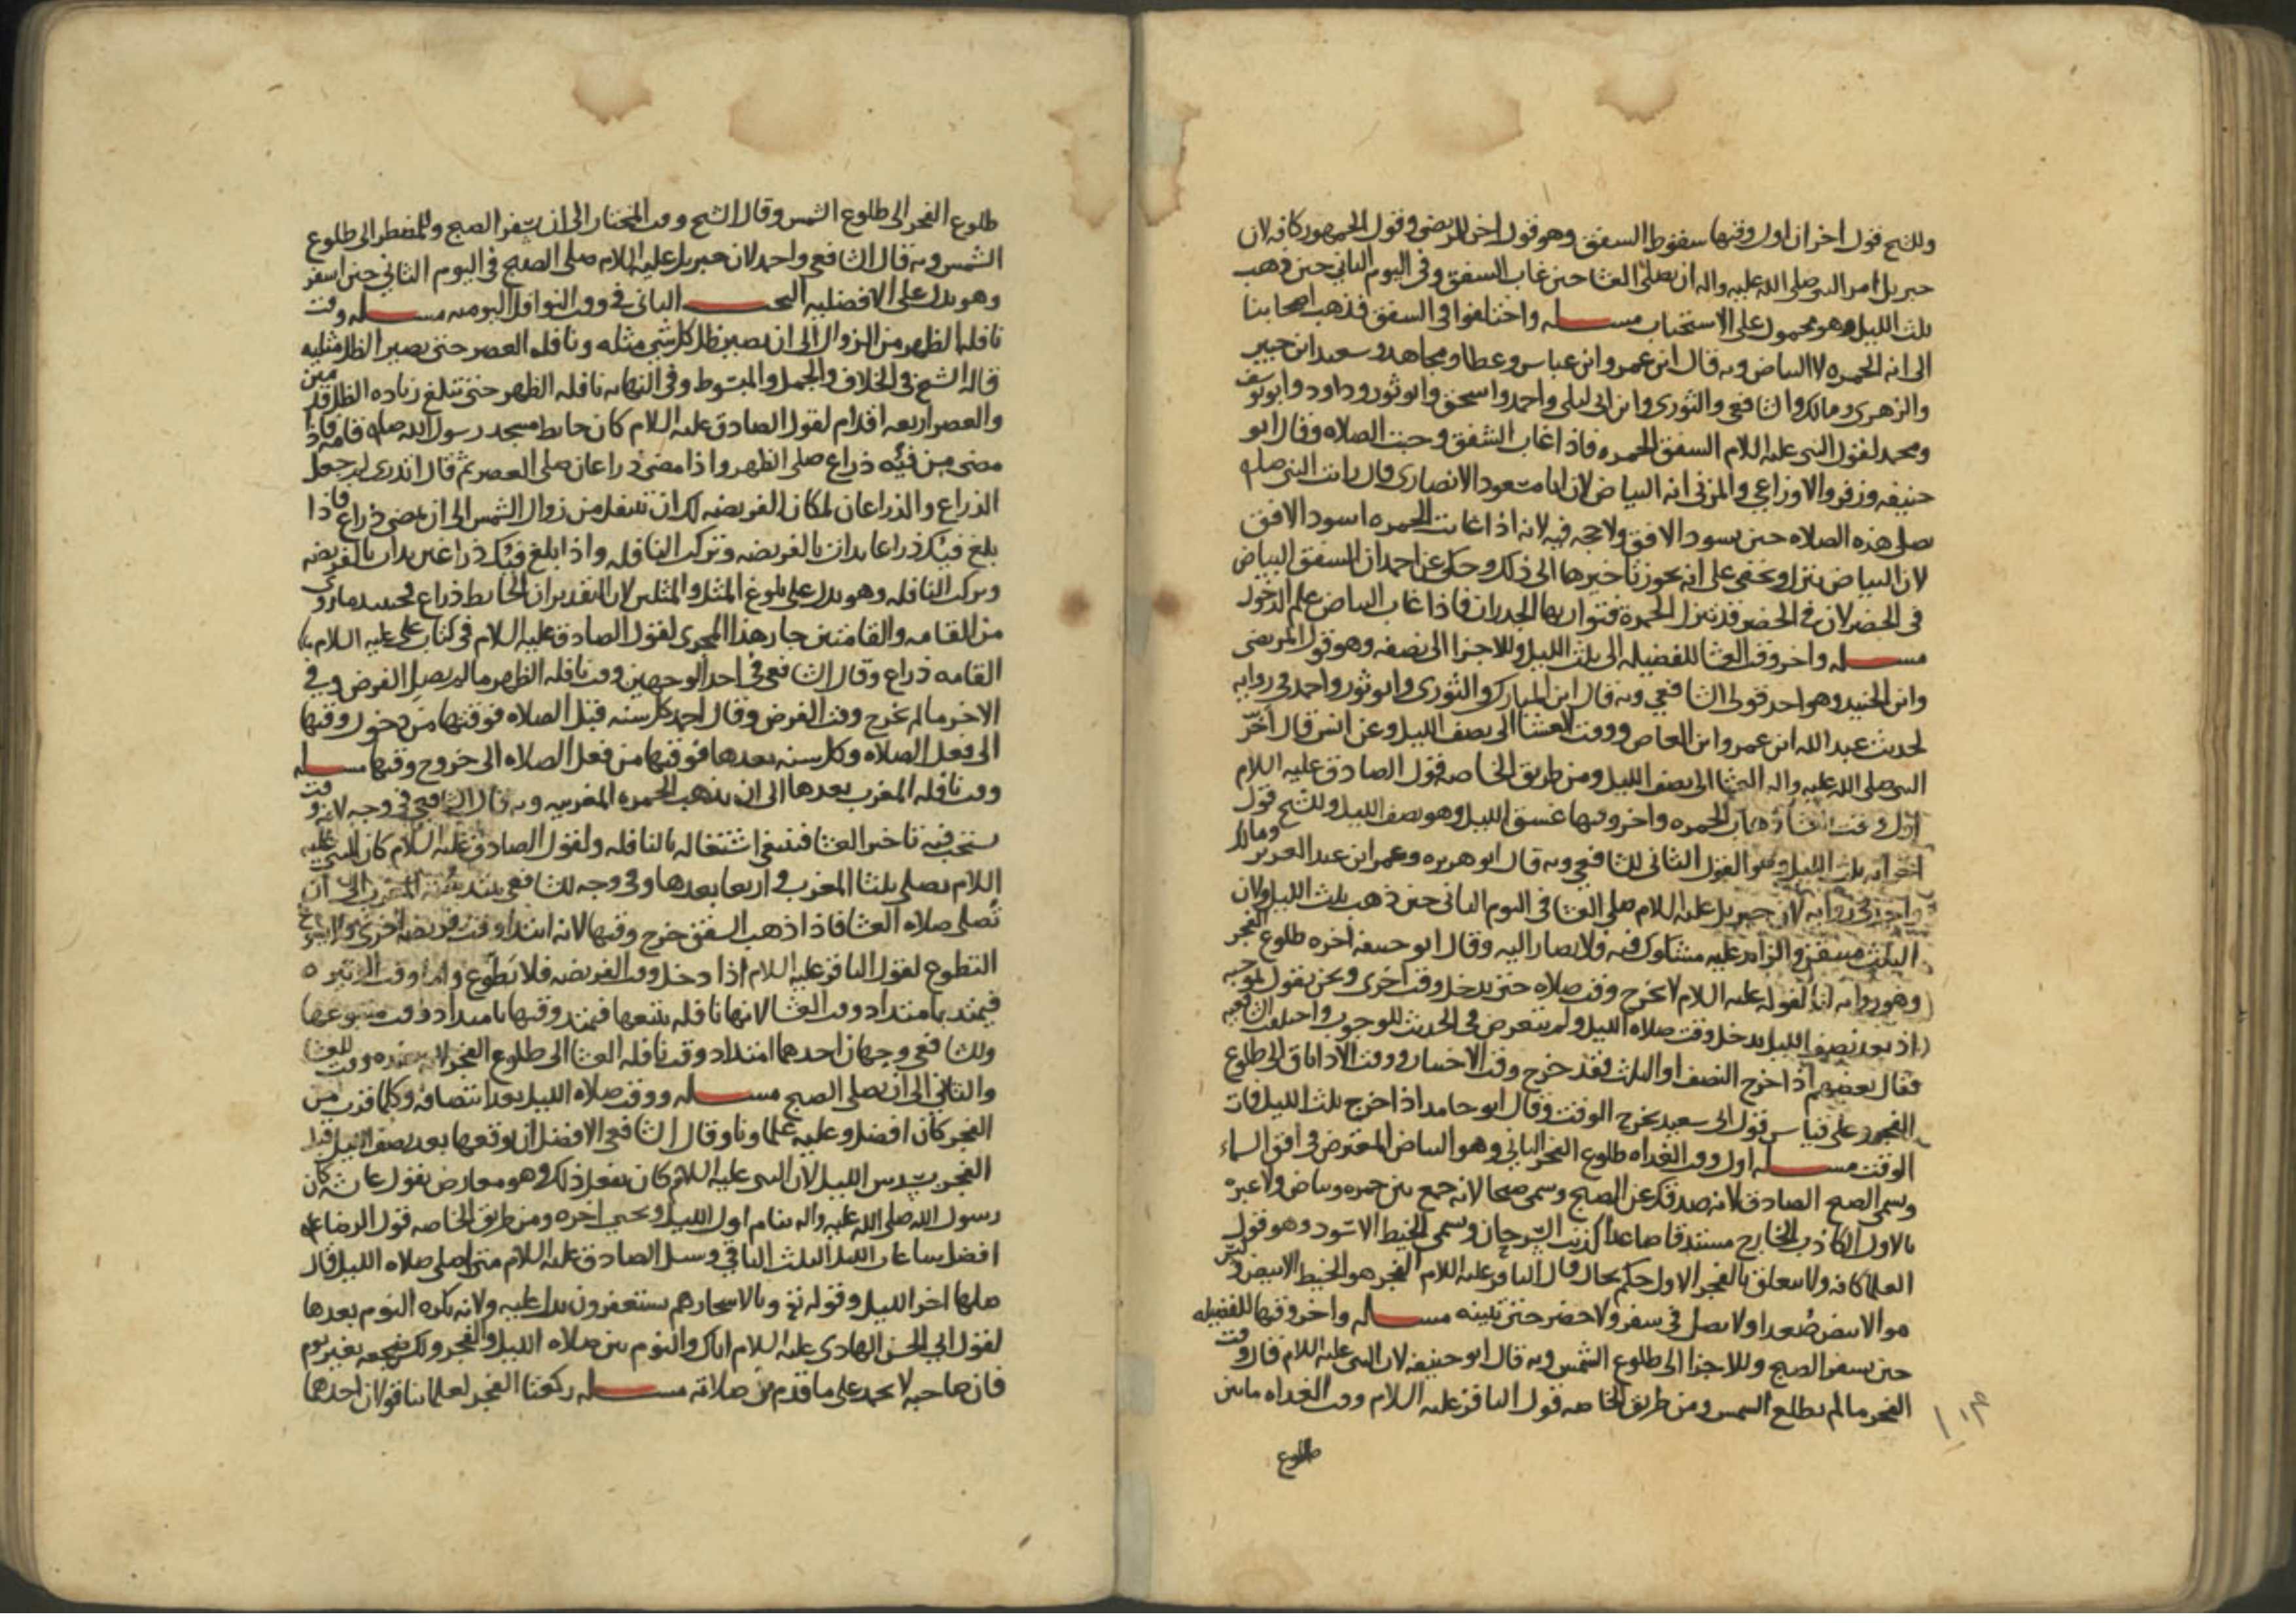 وللشيخ قول اخر ان اول وقتها سقوط الشفق وهو قول اخر للمرتضى وقول الجمهور كافه لان
جبريل امر النبى صلى الله عليه واله ان يصلى العشا حين غاب الشفق وفى اليوم الثانى حين ذهب
ثلث الليل وهو محمول على الاستحباب مسـله واختلفوا فى الشفق فذهب اصحابنا
الى انه الحمره لا البياض وبه قال ابن عمر وابن عباس وعطا ومجاهد وسعيد ابن جبير
والزهرى ومالك والشافعى والثورى وابن ابى ليلى واحمد واسحق وابو ثور وداود وابو يوسف
ومحمد لقول النبى عليه السلام الشفق الحمره فاذا غاب الشفق وجبت الصلاه وقال ابو
حنيفه وزفر والاوزاعى والمزنى انه البياض لان ابا مسعود الانصارى قال رايت النبى صله
يصلى هذه الصلاه حين يسود الافق ولا حجه فيه لانه اذا غابت الحمره اسود الافق
لان البياض ينزل ويخفى على انه يجوز تاخيرها الى ذلك وحكى عن احمد ان الشفق البياض
فى الحضر لان فى الحضر قد تنزل الحمرة فتواريها الجدران فاذا غاب البياض علم الدخول
مسـله واخر وقت العشا للفضيله الى ثلث الليل وللاجزا الى نصفه وهو قول المرتضى
وابن الجنيد وهو احد قولى الشافعى وبه قال ابن المبارك والثورى وابو ثور واحمد فى روايه
لحديث عبد الله ابن عمرو ابن العاص ووقت العشا الى نصف الليل وعن انس قال اخّر
النبى صلى الله عليه واله العشا الى نصف الليل ومن طريق الخاصه قول الصادق عليه السلام
اول وقت العشا ذهاب الحمره واخر وقتها غسق الليل وهو نصف الليل وللشيخ قول
اخر انه ثلث الليل وهو القول الثانى للشافعى وبه قال ابو هريره وعمر ابن عبد العزيز ومالك
واحمد فى روايه لان جبريل عليه السلام صلى العشا فى اليوم الثانى حين ذهب ثلث الليل ولان
الثلث متيقن والزايد عليه مشكوك فيه ولا يصار اليه وقال ابو حنيفه اخره طلوع الفجر
وهو روايه لنا لقوله عليه السلام لا يخرج وقت صلاه حتى يدخل وقت اخرى ونحن نقول بموجبه
اذ بعد نصف الليل يدخل وقت صلاه الليل ولم يتعرض فى الحديث للوجوب واختلفت الشافعيه
فقال بعضهم اذا خرج النصف او الثلث فقد خرج وقت الاختيار ووقت الادا باق الى طلوع
الفجر وعلى قياس قول ابى سعيد يخرج الوقت وقال ابو حامد اذا خرج ثلث الليل فات
الوقت مسـله اول وقت الغداه طلوع الفجر الثانى وهو البياض المعترض فى افق السماء
وسمى الصبح الصادق لانه صدقك عن الصبح وسمى صبحا لانه جمع بين حمره وبياض ولا عبره
بالاول الكاذب الخارج مستدقا صاعدا كذنب السرحان وسمى الخيط الاسود وهو قول
العلماء كافه ولا يتعلق بالفجر الاول حكم بحال وقال الباقر عليه السلام الفجر هو الخيط الابيض وليس
هو الابيض صُعدا ولا تصل فى سفر ولا حضر حتى تبينه مسـله واخر وقتها للفضيله
حين يسفر الصبح وللاجزا الى طلوع الشمس وبه قال ابو حنيفه لان النبى عليه السلام قال وقت
الفجر ما لم تطلع الشمس ومن طريق الخاصه قول الباقر عليه السلام ووقت الغداه ما بين
طلوع
طلوع الفجر الى طلوع الشمس وقال الشيخ وقت المختار الى ان يسفر الصبح وللمضطر الى طلوع
الشمس وبه قال الشافعى واحمد لان جبريل عليه السلام صلى الصبح فى اليوم الثانى حين اسفر
وهو يدل على الافضليه البحـث الثانى فى وقت النوافل اليوميه مسـله وقت
نافله الظهر من الزوال الى ان يصير ظل كل شى مثله ونافله العصر حتى يصير الظل مثليه
قاله الشيخ فى الخلاف والجمل والمبسوط وفى النهايه نافله الظهر حتى تبلغ زياده الظل قدمين
والعصر اربعه اقدام لقول الصادق عليه السلام كان حايط مسجد رسول الله صله قامه فاذا
مضى من فيْئه ذراع صلى الظهر واذا مضى ذراعان صلى العصر ثم قال اتدرى لم جعل
الذراع والذراعان لمكان الفريضه لك ان تتنفل من زوال الشمس الى ان يمضى ذراع فاذا
بلغ فيئك ذراعا بدات بالفريضه وتركت النافله واذا بلغ فيئك ذراعين بدات بالفريضه
وتركت النافله وهو يدل على بلوغ المثل والمثلين لان التقدير ان الحايط ذراع فحينئذ ما روى
من القامه والقامتين جار هذا المجرى لقول الصادق عليه السلام فى كتاب على عليه السلام
القامه ذراع وقال الشافعى فى احد الوجهين وقت نافله الظهر ما لم يصل الفرض وفى
الاخر ما لم يخرج وقت الفرض وقال احمد كل سنه قبل الصلاه فوقتها من دخول وقتها
الى فعل الصلاه وكل سنه بعدها فوقتها من فعل الصلاه الى خروج وقتها مسـله
ووقت نافله المغرب بعدها الى ان تذهب الحمره المغربيه وبه قال الشافعى فى وجه لانه وقت
يستحب فيه تاخير العشا فينبغى اشتغاله بالنافله ولقول الصادق عليه السلام كان النبى عليه
السلام يصلى ثلثا المغرب واربعا بعدها وفى وجه للشافعى يمتد سنه المغرب الى ان
تُصلى صلاه العشا فاذا ذهب الشفق خرج وقتها لانه ابتدا وقت فريضه اخرى
التطوع لقول الباقر عليه السلام اذا دخل وقت الفريضه فلا تطوّع واما وقت الوتيره
فيمتد بامتداد وقت العشا لانها نافله تتبعها فيمتد وقتها بامتداد وقت متبوعها
وللشافعى وجهان احدهما امتداد وقت نافله العشا الى طلوع الفجر لانه عنده وقت للعشا
والثانى الى ان يصلى الصبح مسـله ووقت صلاه الليل بعد انتصافه وكلما قرب من
الفجر كان افضل وعليه علماونا وقال الشافعى الافضل ان يوقعها بعد نصف الليل قبل
الفجر بسدس الليل لان النبى عليه السلام كان يفعل ذلك وهو معارض بقول عايشه كان
رسول الله صلى الله عليه واله ينام اول الليل ويحيى اخره ومن طريق الخاصه قول الرضا عله
افضل ساعات الليل الثلث الباقى وسيل الصادق عليه السلام متى اصلى صلاه الليل فقال
صلها اخر الليل وقوله تع وبالاسحار هم يستغفرون يدل عليه ولانه يكره النوم بعدها
لقول ابى الحسن الهادى عليه السلام اياك والنوم بين صلاه الليل والفجر ولكن ضجعه بغير نوم
فان صاحبه لا يحمد على ما قدم من صلاته مسـله ركعتا الفجر لعلماينا قولان احدهما